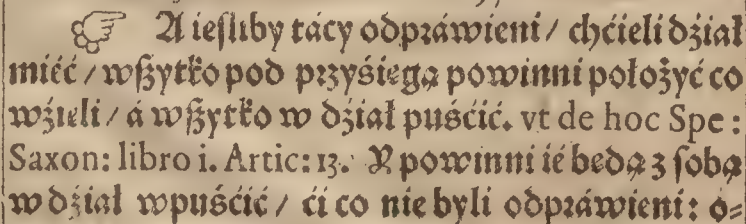 ☞ A ieſliby tácy odpráwieni / chćieli dźiał
mieć / wſzytko pod przyśięgą powinni położyć co
wźięli / á wſzytko w dźiał puśćić. vt de hoc Spe:
Saxon: libro i. Artic: 13. Y powinni ie będą z ſobą
w dźiał wpuśćić / ći co nie byli odpráwieni: o-